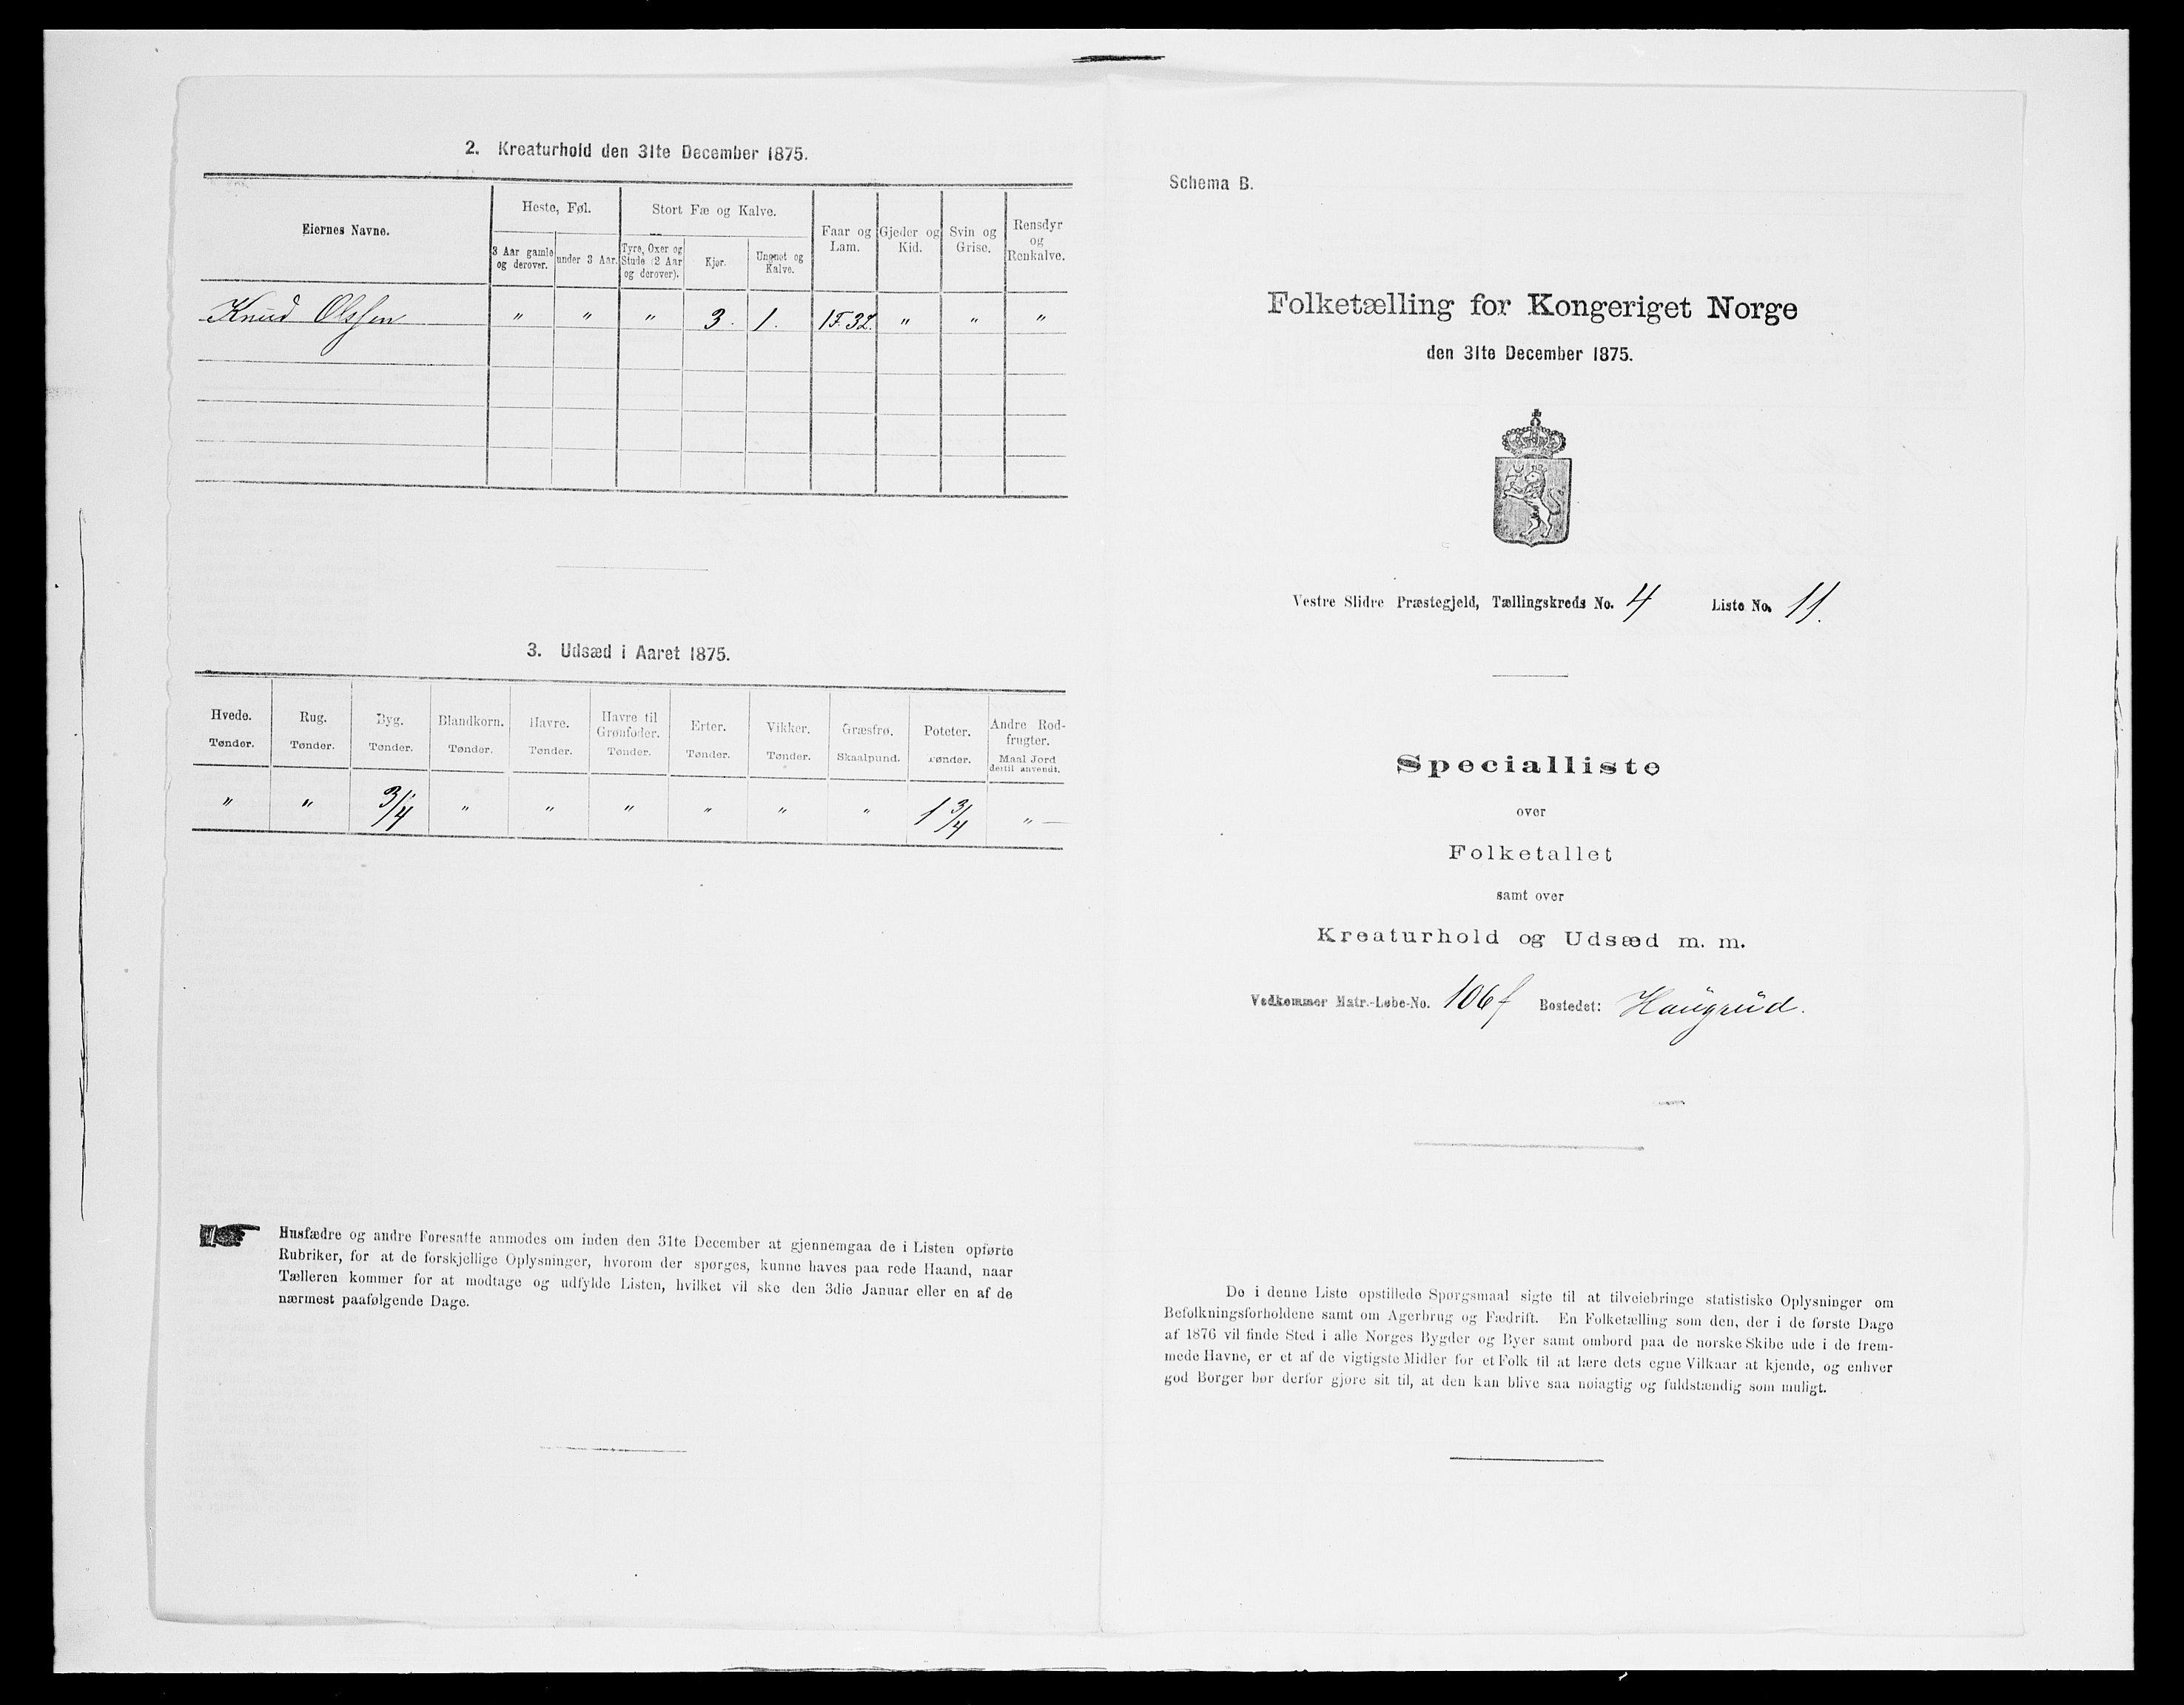 2. Kreaturhold den 31te December 1875.
Eiernes Navne.
Heste, Føl.
Stort Fæ og Kalve.
Faar og Lam.
Gjeder og Kid.
Svin og Grise.
Rensdyr og Renkalve.
3 Aar gamle og derover.
under 3 Aar.
Tyre, Oxer og Stude (2 Aar og derover).
Kjør.
Ungnøt og Kalve.
Knud Olssen " " " 3. 1. 1F. 3L. " " "
3. Udsæd i Aaret 1875.
Hvede. Rug. Byg. Blandkorn. Havre. Havre til Grønfoder. Erter. Vikker. Græsfrø. Poteter. Andre Rodfrugter.
Tønder. Tønder. Tønder. Tønder. Tønder. Tønder. Tønder. Tønder. Skaalpund. Tønder. Maal Jord dertil anvendt.
" " 3/4 " " " " " " 1 3/4 " —
Husfædre og andre Foresatte anmodes om inden den 31te December at gjennemgaa de i Listen opførte
Rubriker, for at de forskjellige Oplysninger, hvorom der spørges, kunne haves paa rede Haand, naar
Tælleren kommer for at modtage og udfylde Listen, hvilket vil ske den 3die Januar eller en af de
nærmest paafølgende Dage.
Schema B.
Folketælling for Kongeriget Norge
den 31te December 1875.
Vestre Slidre Præstegjeld, Tællingskreds No. 4 Liste No. 11.
Specialliste
over
Folketallet
samt over
Kreaturhold og Udsæd m. m.
Vedkommer Matr.-Løbe-No. 106f Bostedet: Haugrud.
De i denne Liste opstillede Spørgsmaal sigte til at tilveiebringe statistiske Oplysninger om
Befolkningsforholdene samt om Agerbrug og Fædrift. En Folketælling som den, der i de første Dage
af 1876 vil finde Sted i alle Norges Bygder og Byer samt ombord paa de norske Skibe ude i de frem-
mede Havne, er et af de vigtigste Midler for et Folk til at lære dets egne Vilkaar at kjende, og enhver
god Borger bør derfor gjøre sit til, at den kan blive saa nøiagtig og fuldstændig som muligt.